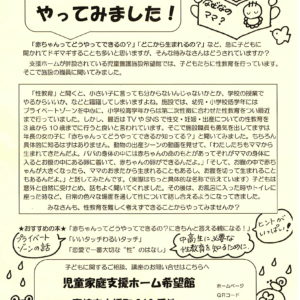 やってみました！
なぜなの
ママ？
「赤ちゃんってどうやってできるの？」「どこから生まれるの？」など、急に子どもに
聞かれてドギマギすることも多いと思いますが、そんな時みなさんはどうされていますか？
支援ホームが併設されている児童養護施設希望館では、子どもたちに性教育を行っています。
そこで施設の職員に聞いてみました。
「性教育」と聞くと、小さい子に言っても分からないんじゃないかとか、学校の授業で
やるからいいか、などと躊躇してしまいますよね。施設では、幼児・小学校低学年には
プライベートゾーンを中心に、小学校高学年から
行ってきました。しかし、最近はTVやSNSで性交・妊娠・出産についての性教育を
3歳から10歳までに行うと良いと言われています。そこで施設職員も勇気を出してまずは
年長の女の子に「赤ちゃんってどうやってできるの知ってる？」と聞いてみました。もちろん
具体的に知るはずはありません。動物の出産シーンの動画を見せて、「わたしたちもママから
生まれてきたんだよ。パパの身体の中には赤ちゃんの素のもとがあってそれがママの身体に
入るとお腹の中にある卵に着いて、赤ちゃんの卵ができるんだよ。」「そして、お腹の中で赤ちゃ
んが大きくなったら、ママのおまたから生まれることもあるし、お腹を切って生まれること
もあるんだよ。」と話してみたんです。（実際はもっと具体的な名称で伝えています）子どもは
意外と自然に受けとめ、話もよく聞いてくれました。その後は、お風呂に入った時やトイレに
座った時など、日常の色々な場面を通して性について話し合えるきっかけになっています。
みなさんも、性教育を難しく考えず
★おすすめの本★
「赤ちゃんってどうやってできるの？にきちんと答える親になる！」
「いいタッチわるいタッチ」
「恋愛で一番大切な“性”のはなし」
プライベート
ゾーンの話
中高生に必要な
性教育を知るために
ヒントが
いっぱい！
子どもに関するご相談、講座のお問い合せはこちらへ
児童家庭支援ホーム希望館
ホームページ
QRコード